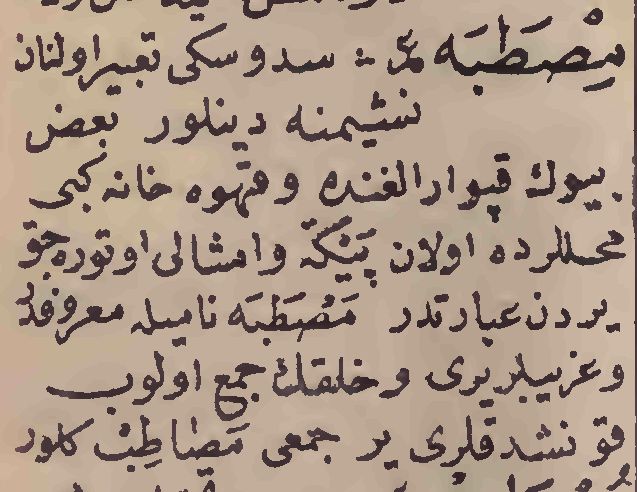 مِصْطَبَه سد و سكی تعبير اولنان
نشيمنه دينلور بعض
بيوك قپو ارالغنده و قهوه خانه كبی
محللرده اولان پَيْكَه و امثالی اوتوره جق
يردن عبارتدر مَصْطَبَه ناميله معروفدر
و غريبلر يری و خلقك جمع اولوب
قونشدقلری ير جمعی مَصَاطِبْ كلور